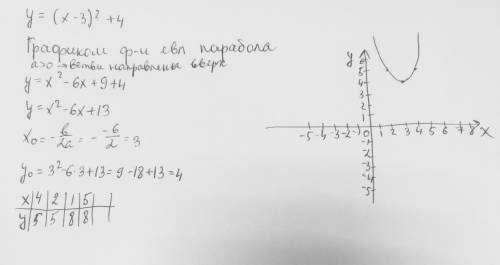 y = (x - 3)² + 4
Графиком ф-и евл. парабола
a>0 → ветви направлены вверх
y = x² - 6x + 9 + 4
y = x² - 6x + 13
x₀ = - b/2a = - -6/2 = 3
y₀ = 3² - 6·3 + 13 = 9 - 18 + 13 = 4
x | 4 | 2 | 1 | 5 |
y | 5 | 5 | 8 | 8 |
y
6
5
4
3
2
1
-5 -4 -3 -2 -1 0 1 2 3 4 5 6 7 8 x
-1
-2
-3
-4
-5